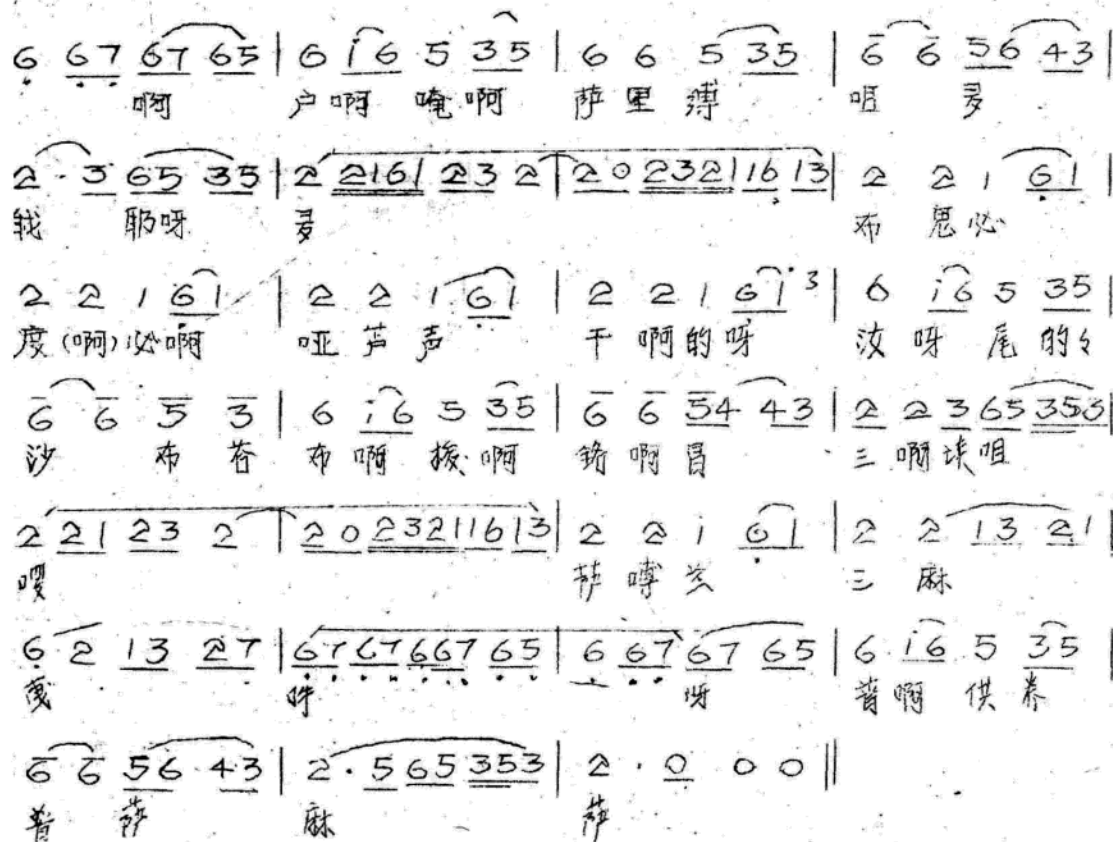 6 67 67 65 | 6 i6 5 35 | 6 6 5 35 | 6 6 56 43 |
啊 户啊 唵啊 萨里缚 咀 多
2 · 3 65 35 | 2 2161 23 2 | 20 2321 16 13 | 2 2 1 61 |
我 耶呀 多 布 思必
2 2 1 61 | 2 2 1 61 | 2 2 1 61 3 | 6 i6 5 35 |
度(啊)必啊 哑芦声 干啊的呀 汝呀 尾的
6 6 5 3 | 6 i6 5 35 | 6 6 54 43 | 2 2 3 65 353 |
沙 布答 布啊 啊 铬啊冒 三啊埃咀
2 21 23 2 | 20 2321 16 13 | 2 2 i 61 | 2 2 13 21 |
嘤 萨嘚兰 三麻
6 2 13 27 | 67 67 667 65 | 6 67 67 65 | 6 i6 5 35 |
吽 呀 普啊 供养
6 6 56 43 | 2 · 5 65 353 | 2 · 0 0 0 ‖
普 萨 麻 萨